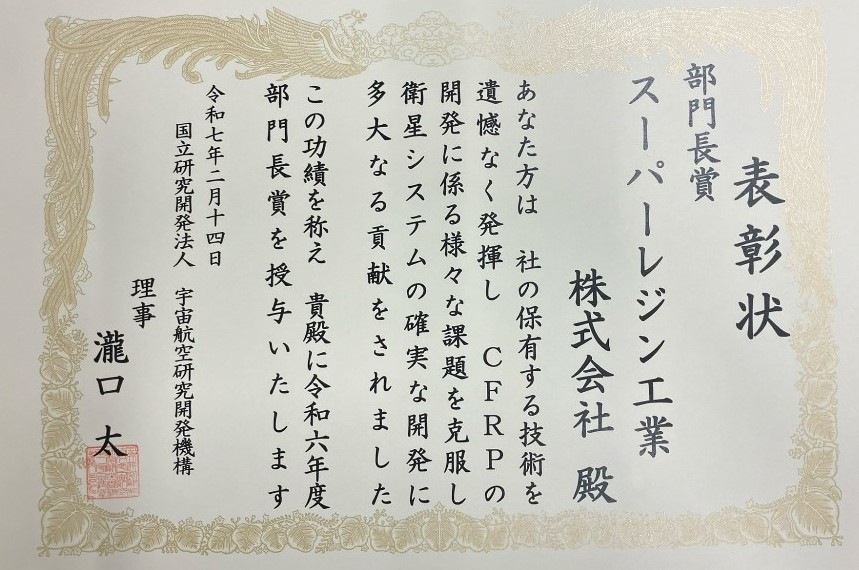 表彰状
部門長賞
スーパーレジン工業
株式会社 殿
あなた方は 社の保有する技術を
遺憾なく発揮し CFRPの
開発に係る様々な課題を克服し
衛星システムの確実な開発に
多大なる貢献をされました
この功績を称え 貴殿に令和六年度
部門長賞を授与いたします
令和七年二月十四日
国立研究開発法人 宇宙航空研究開発機構
理事
瀧口 太